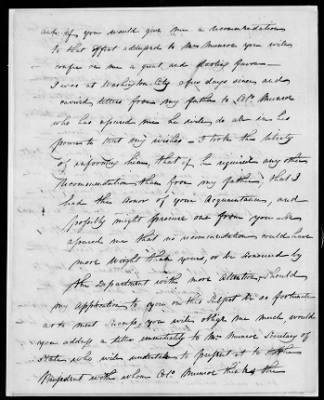 ask if you would give me a recommendation
to that effect addressed to Mr Munroe you will
confer on me a great and lasting favor—
I was at Washington City a few days since and
carried letters from my father to Colo. Munroe
who has assured me he will do all in his
power to meet my wishes— I took the liberty
of informing them, that if he required any other
recommendation than from my father, that I
had the honor of your acquaintance, and
possibly might procure one from you— he
assured me that no recommendation would have
more weight than yours, or be received by
the Department with more attention, Should
my application to you on this subject be so fortunate
as to meet success, you will oblige me much would
you address a letter immediately to Mr Munroe Secretary of
State who will undertake to present it to the
President with whom Colo. Munroe thinks the